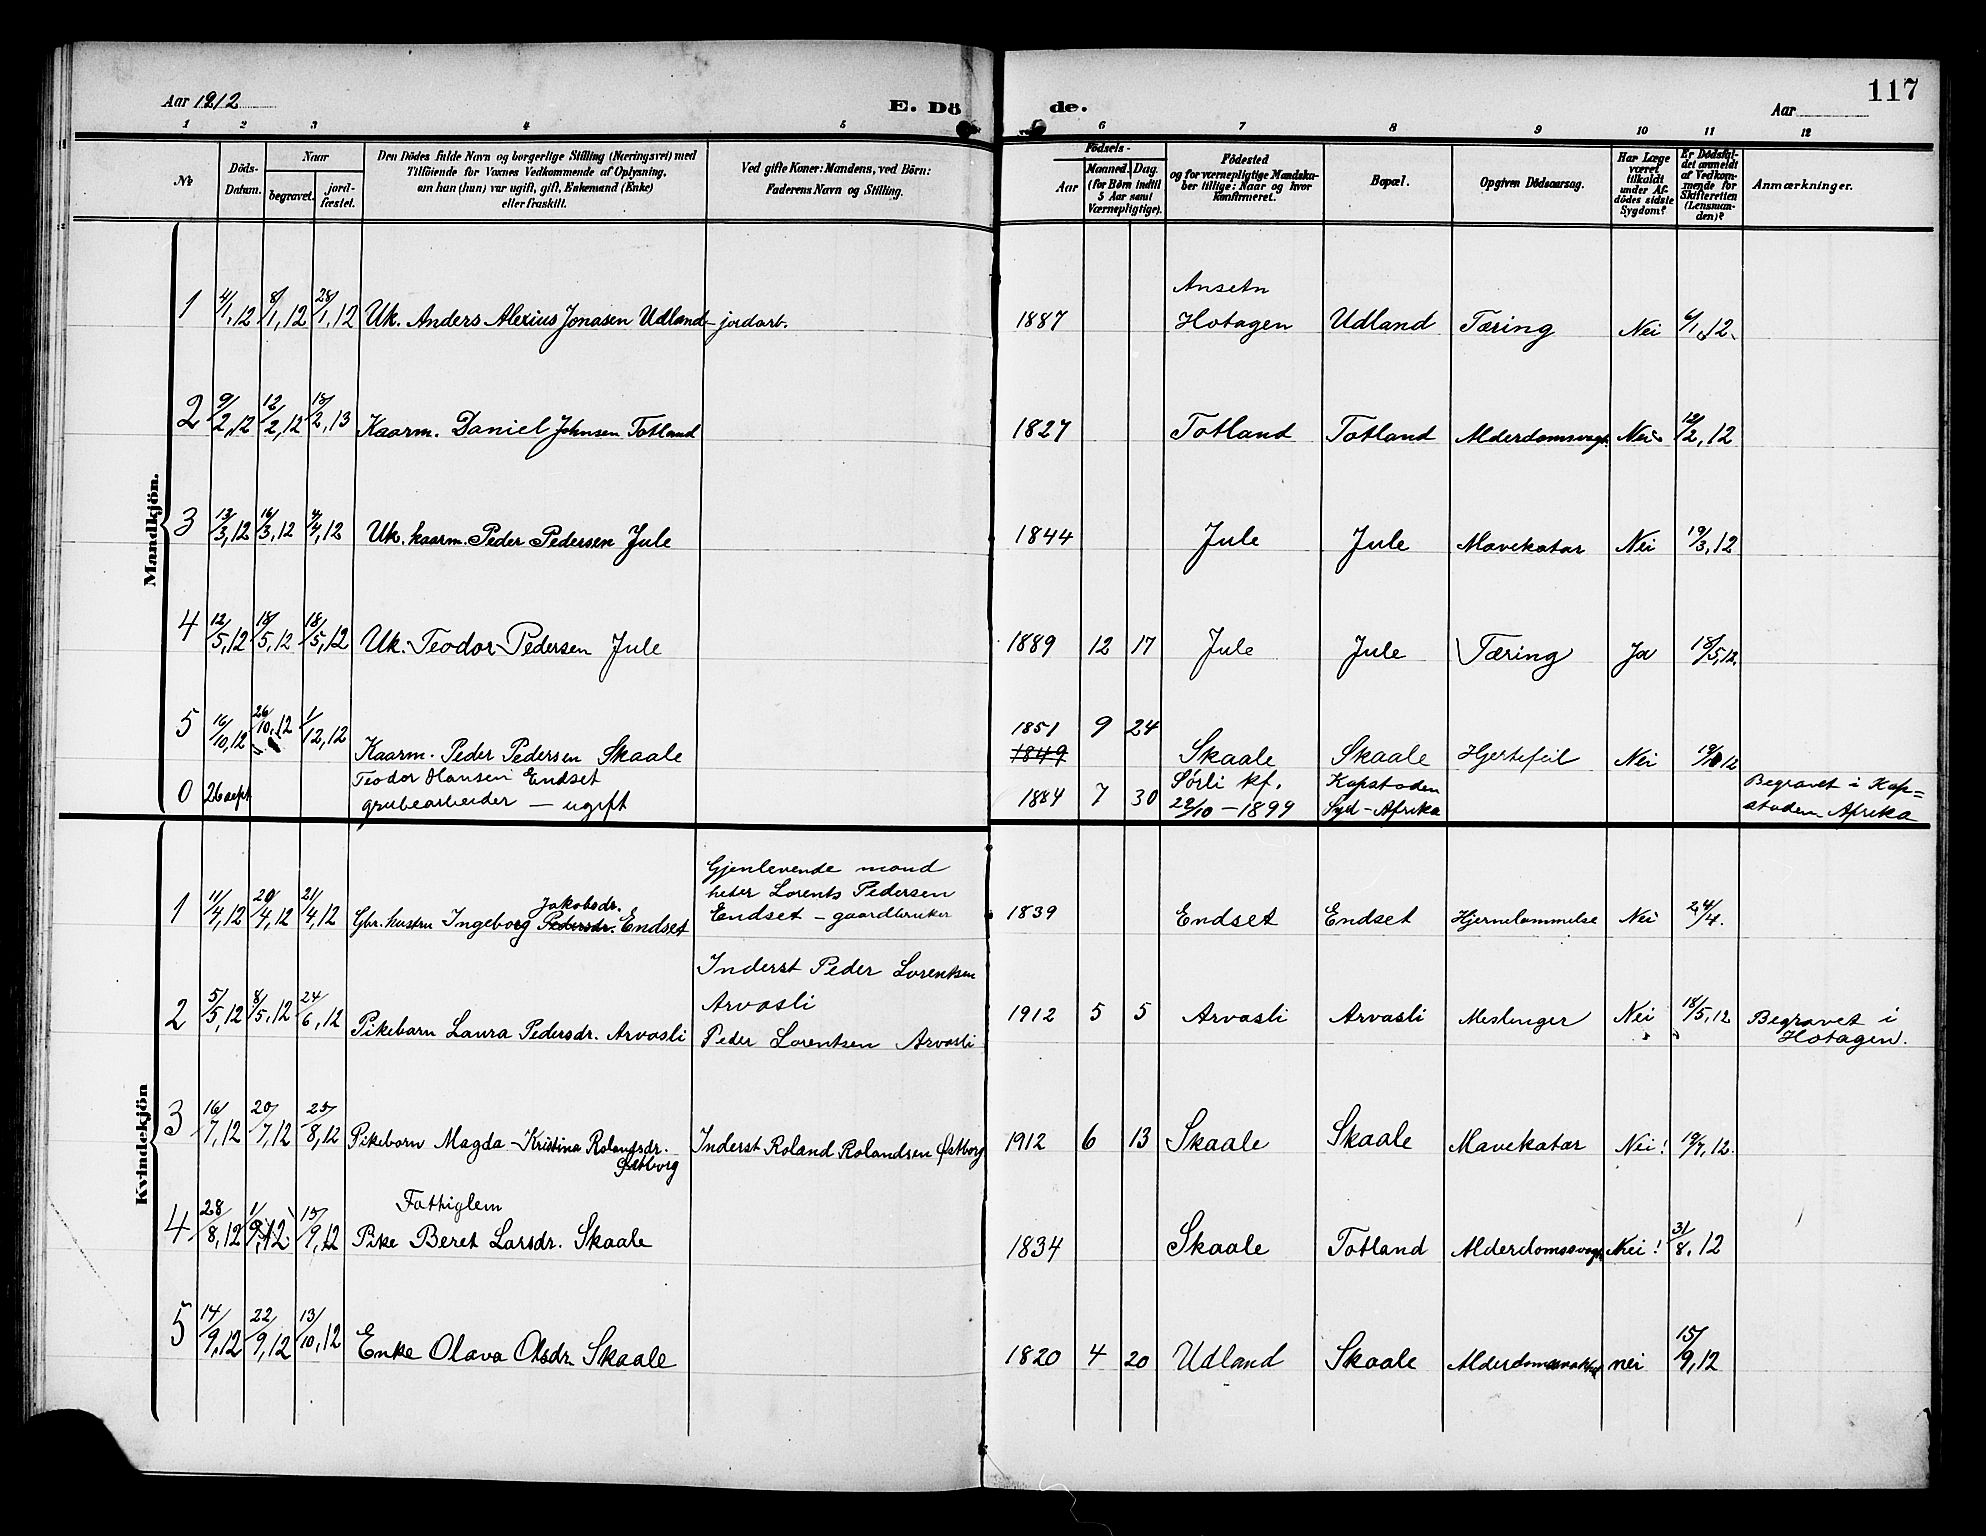 Aar 1912
E. Dö de.
Aar
117
1 2 3 4 5 6 7 8 9 10 11 12
№
Döds-
Datum.
Naar
begravet.
jord-
fæstet.
Den Dödes fulde Navn og borgerlige Stilling (Næringsvei) med
Tilföiende for Voxnes Vedkommende af Oplysning,
om han (hun) var ugift, gift, Enkemand (Enke)
eller fraskilt.
Ved gifte Koner: Mandens, ved Börn:
Faderens Navn og Stilling.
Födsels-
Aar
Maaned. Dag.
(for Börn indtil
5 Aar samt
Værnepligtige).
Födested
og for værnepligtige Mandska-
ber tillige: Naar og hvor
konfirmeret.
Bopæl.
Opgiven Dödsaarsag.
Har Læge
været
tilkaldt
under Af-
dödes sidste
Sygdom?
Er Dödsfal-
det anmeldt
af Vedkom-
mende for
Skifteretten
(Lensman-
den)?
Anmærkninger.
Mandkjön.
1 4/1, 12 8/1, 12 28/1, 12 Uk. Anders Alexius Jonasen Udland - jordarb. 1887 Ansetn
Hotagen Udland Tæring Nei 6/1, 12.
2 9/2, 12 12/2, 12 18/2, 13 Kaarm. Daniel Johnsen Totland 1827 Totland Totland Alderdomssvagh. Nei 12/2, 12
3 13/3, 12 16/3, 12 4/4, 12 Uk. kaarm. Peder Pedersen Jule 1844 Jule Jule Mavekatar Nei 19/3, 12
4 12/5, 12 18/5, 12 18/5, 12 Uk. Teodor Pedersen Jule 1889 12 17 Jule Jule Tæring Ja 18/5, 12.
5 16/10, 12 26/10, 12 1/12, 12 Kaarm. Peder Pedersen Skaale 1851 9 24
1849 Skaale Skaale Hjertefeil Nei 19/10 12
0 26 sept Teodor Hansen Endset
grubearbeider - ugift 1884 7 30 Sørli kf.
22/10 - 1899 Kapstaden
Syd-Afrika Begravet i Kap=
staden Afrika
Kvindekjön
1 11/4, 12 20/4, 12 21/4, 12 Gbr. hustru Ingeborg Jakobsdr.
Pedersdr. Endset Gjenlevende mand
heter Lorents Pedersen
Endset - gaardbruker 1839 Endset Endset Hjernelammelse Nei 24/4.
2 5/5, 12 8/5, 12 24/6, 12 Pikebarn Laura Pedersdr. Arvasli Inderst Peder Lorentsen
Arvasli
Peder Lorentsen Arvasli 1912 5 5 Arvasli Arvasli Meslinger Nei 18/5, 12 Begravet i
Hotagen.
3 16/7, 12 20/7, 12 25/8, 12 Pikebarn Magda Kristina Rolandsdr.
Østborg Inderst Roland Rolandsen Østborg 1912 6 13 Skaale Skaale Mavekatar Nei! 19/7, 12.
4 28/8, 12 1/9, 12 15/9, 12 Fattiglem
Pike Beret Larsdr. Skaale 1834 Skaale Totland Alderdomssvagh. Nei! 31/8, 12
5 14/9, 12 22/9, 12 13/10, 12 Enke Olava Olsdr Skaale 1820 4 20 Udland Skaale nei 15/9, 12